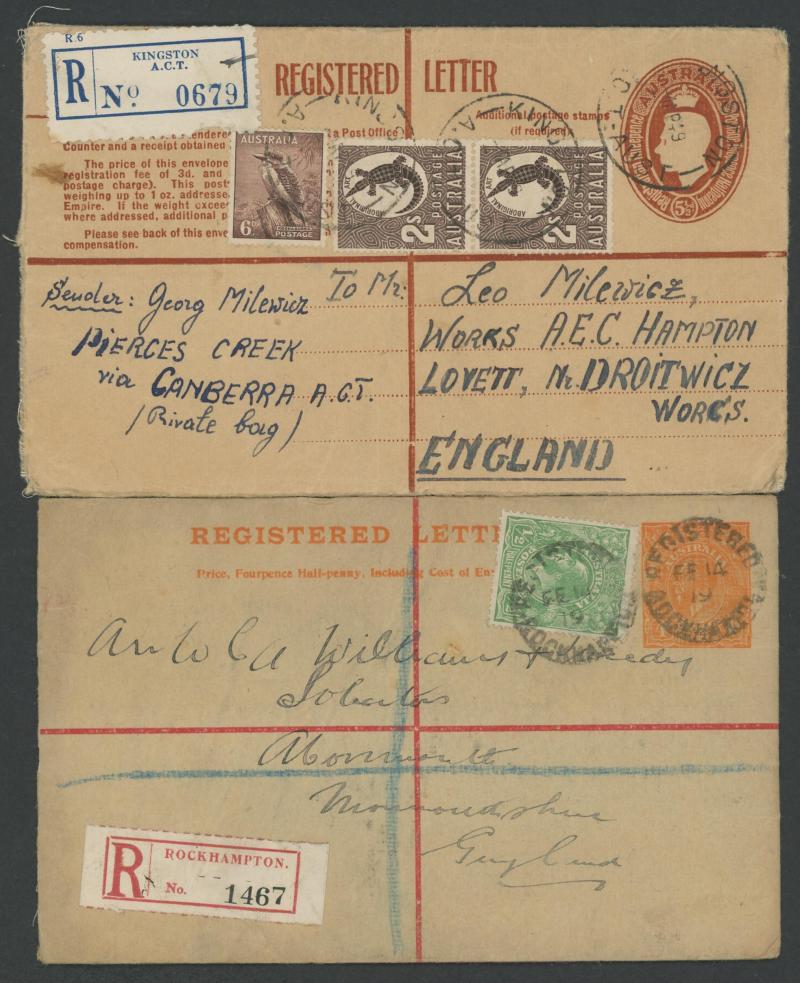 R6
KINGSTON
A.C.T.
R No 0679
REGISTERED LETTER
Additional postage stamps
(if required)
a Post Office
Counter and a receipt obtained
The price of this envelope
registration fee of 3d. and
postage charge). This post
weighing up to 1 oz. addresse
Empire. If the weight excee
where addressed, additional p
Please see back of this enve
compensation.
AUSTRALIA
6D
POSTAGE
ABORIGINAL ART
2s
POSTAGE
AUSTRALIA
ABORIGINAL ART
2s
POSTAGE
AUSTRALIA
AUSTRALIA
5½D
Sender: Georg Milewicz
PIERCES CREEK
via CANBERRA A.C.T.
(Private bag)
To Mr: Leo Milewicz,
WORKS A.E.C. HAMPTON
LOVETT, Nr. DROITWICZ
WORCS.
ENGLAND
REGISTERED LETTE
Price, Fourpence Half-penny, Including Cost of En
½D
HALFPENNY
REGISTERED
FE 14
19
ROCKHAMPTON
Williams
Solicitors
Monmouthshire
England
ROCKHAMPTON.
R No. 1467